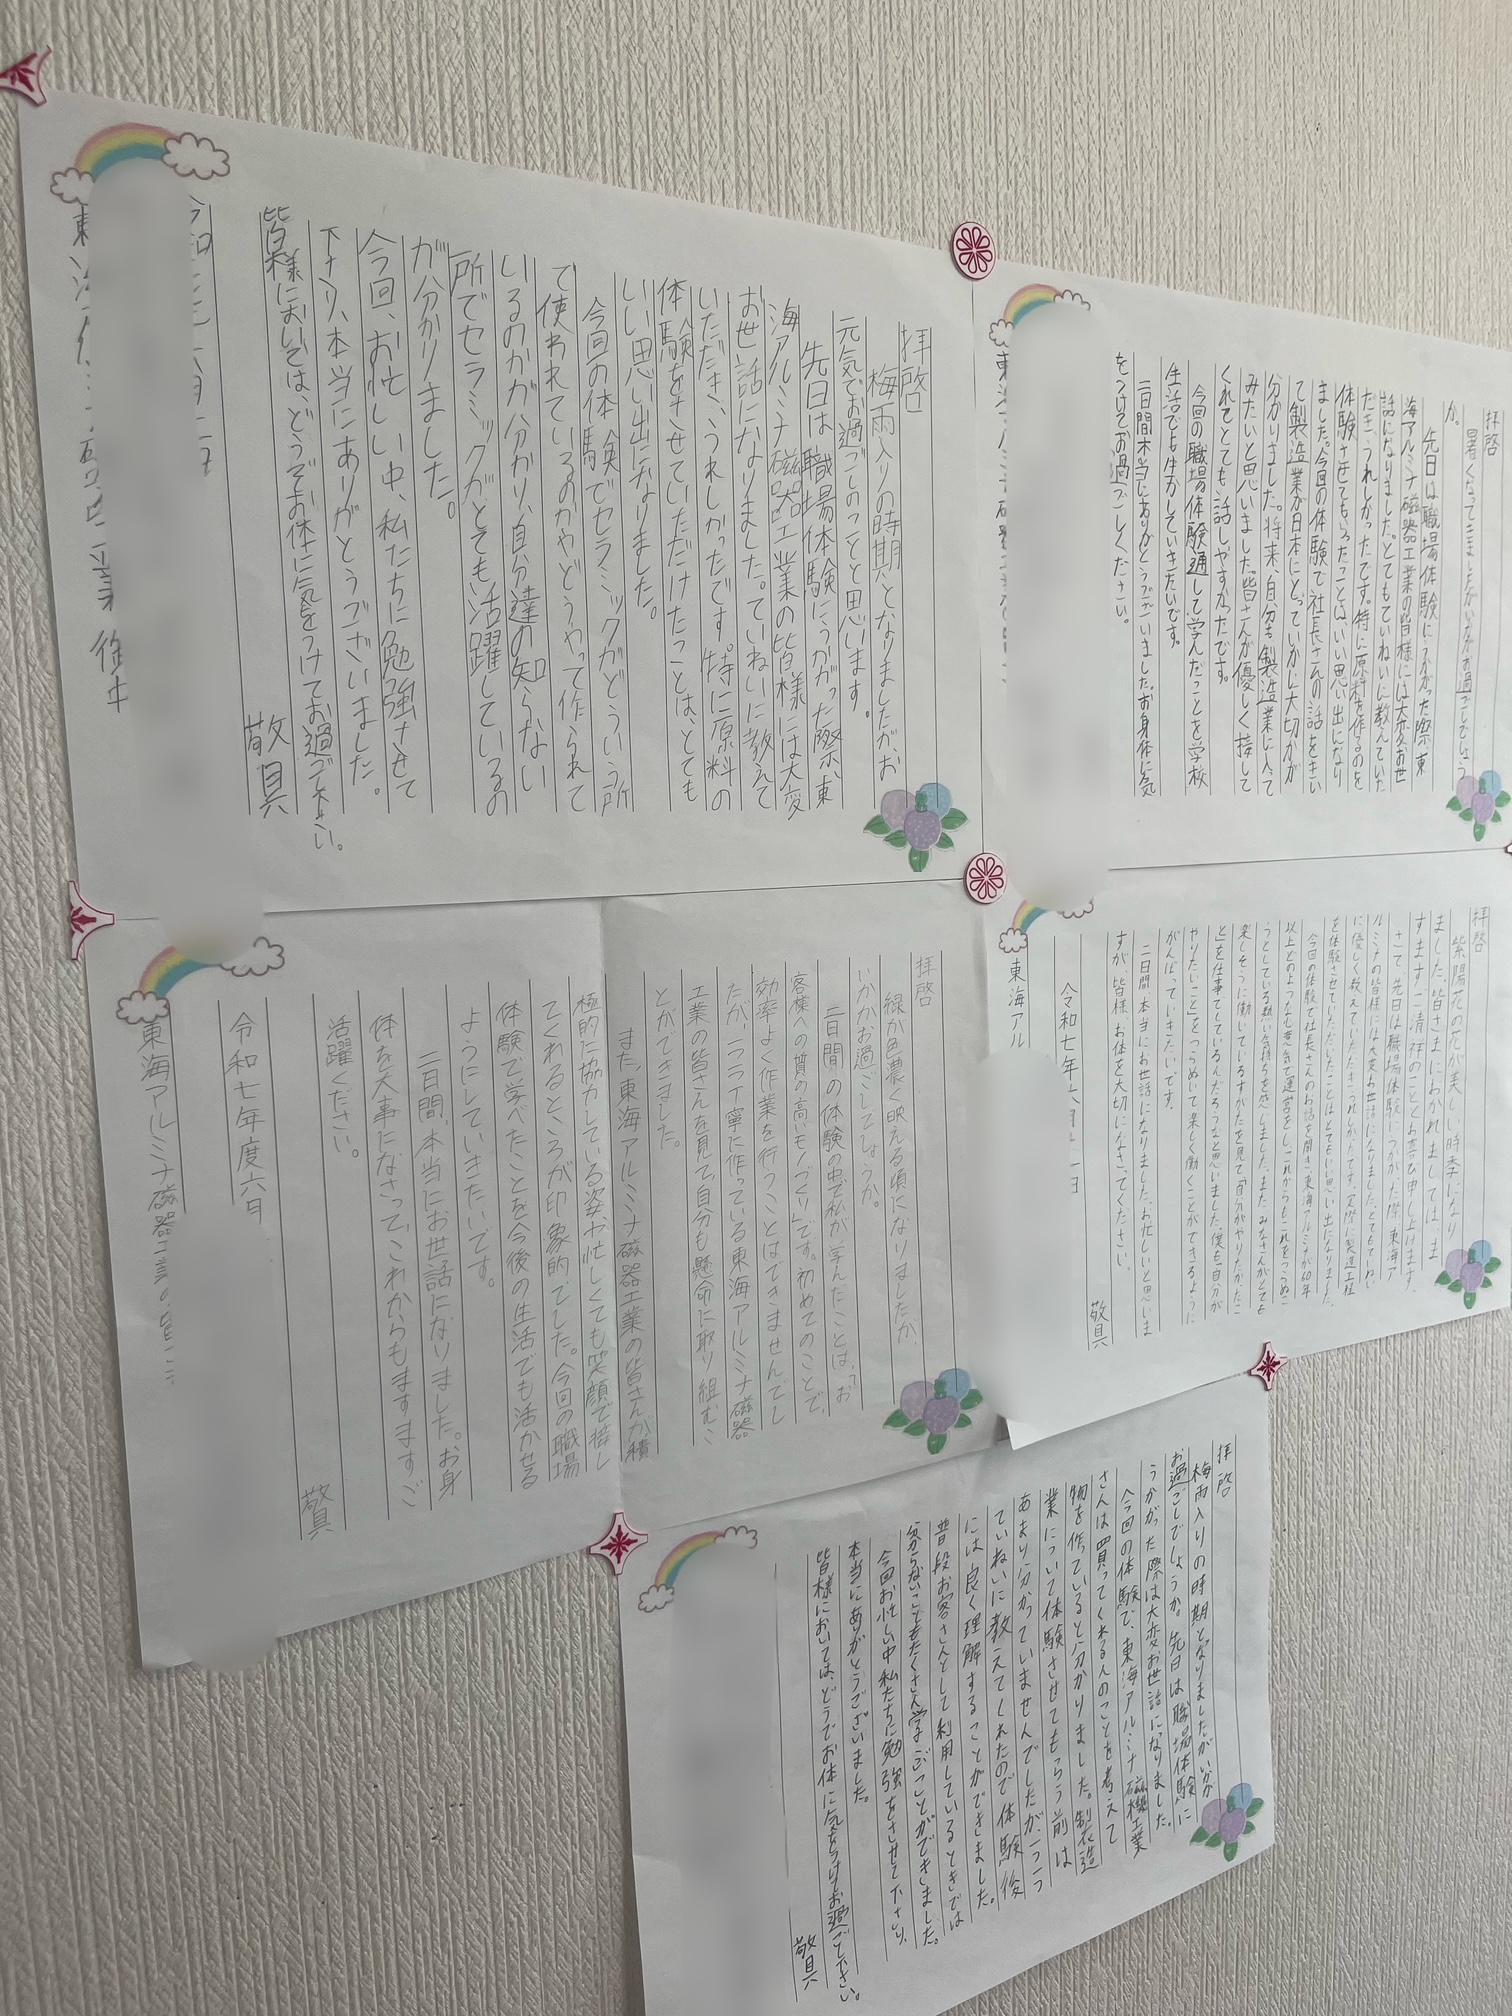 拝啓
梅雨入りの時期となりましたが、お
元気でお過ごしのことと思います。
先日は職場体験にうかがった際、東
海アルミナ磁器工業の皆様には大変
お世話になりました。ていねいに教えて
いただき、うれしかったです。特に原料の
体験をさせていただけたことは、とても
いい思い出になりました。
今回の体験でセラミックがどういう所
で使われているのかやどうやって作られて
いるのかが分かり、自分達の知らない
所でセラミックがとても活躍しているの
が分かりました。
今回、お忙しい中、私たちに勉強させて
下さり、本当にありがとうございました。
皆様においては、どうぞお体に気をつけてお過ごし下さい。
敬具
拝啓
暑くなってきましたがいかがお過ごしでしょう
か。
先日は職場体験にうかがった際、東
海アルミナ磁器工業の皆様には大変お世
話になりました。とてもていねいに教えていた
だきうれしかったです。特に原料を作るのを
体験させてもらったことはいい思い出になり
ました。今回の体験で社長さんの話をきい
て製造業が日本にとっていかに大切かが
分かりました。将来、自分も製造業に入って
みたいと思いました。皆さんが優しく接して
くれてとても話しやすかったです。
今回の職場体験通して学んだことを学校
生活でも生かしていきたいです。
二日間本当にありがとうございました。お身体に気
をつけてお過ごしください。
拝啓
緑が色濃く映える頃になりましたが、
いかがお過ごしでしょうか。
二日間の体験の中で私が学んだことは、「お
客様への質の高いモノづくり」です。初めてのことで、
効率よく作業を行うことはできませんでし
たが、一つ一つ丁寧に作っている東海アルミナ磁器
工業の皆さんを見て、自分も懸命に取り組むこ
とができました。
また、東海アルミナ磁器工業の皆さんが積
極的に協力している姿や忙しくても笑顔で接し
てくれるところが印象的でした。今回の職場
体験で学べたことを今後の生活でも活かせる
ようにしていきたいです。
二日間、本当にお世話になりました。お身
体を大事になさって、これからもますますご
活躍ください。
敬具
令和七年度六月
東海アルミナ磁器工業の皆
拝啓
紫陽花の花が美しい時季になり
ました。皆さまにおかれましては、ま
すますご清祥のこととお喜び申し上げます。
さて、先日は職場体験にうかがった際、東海ア
ルミナの皆様には大変お世話になりました。とてもていねい
に優しく教えていただきうれしかったです。実際に製造工程
を体験させていただいたことはとてもいい思い出になりました。
今回の体験で社長さんのお話を聞き、東海アルミナが60年
以上どのような心意気で運営をし、これからもこれをつづけよ
うとしている熱い気持ちを感じました。またみなさんがとても
楽しそうに働いているすがたを見て「自分がやりたかったこ
と」を仕事でしているんだろうなと思いました。僕も「自分が
やりたいこと」をつらぬいて楽しく働くことができるように
がんばっていきたいです。
二日間、本当にお世話になりました。お忙しいと思いま
すが、皆様、お体を大切になさってください。
敬具
令和七年六月
東海アル
拝啓
梅雨入りの時期となりましたがいかが
お過ごしでしょうか。先日は職場体験に
うかがった際は大変お世話になりました。
今回の体験で、東海アルミナ磁機工業
さんは買ってくれる人のことを考えて
物を作っていると分かりました。製造
業について体験させてもらう前は
あまり分かっていませんでしたが、一つ一つ
ていねいに教えてくれたので体験後
には良く理解することができました。
普段お客さんとして利用しているときでは
分からないこともたくさん学ぶことができました。
今回お忙しい中私たちに勉強をさせて下さり、
本当にありがとうございました。
皆様においては、どうぞお体に気をつけてお過ごし下さい。
敬具